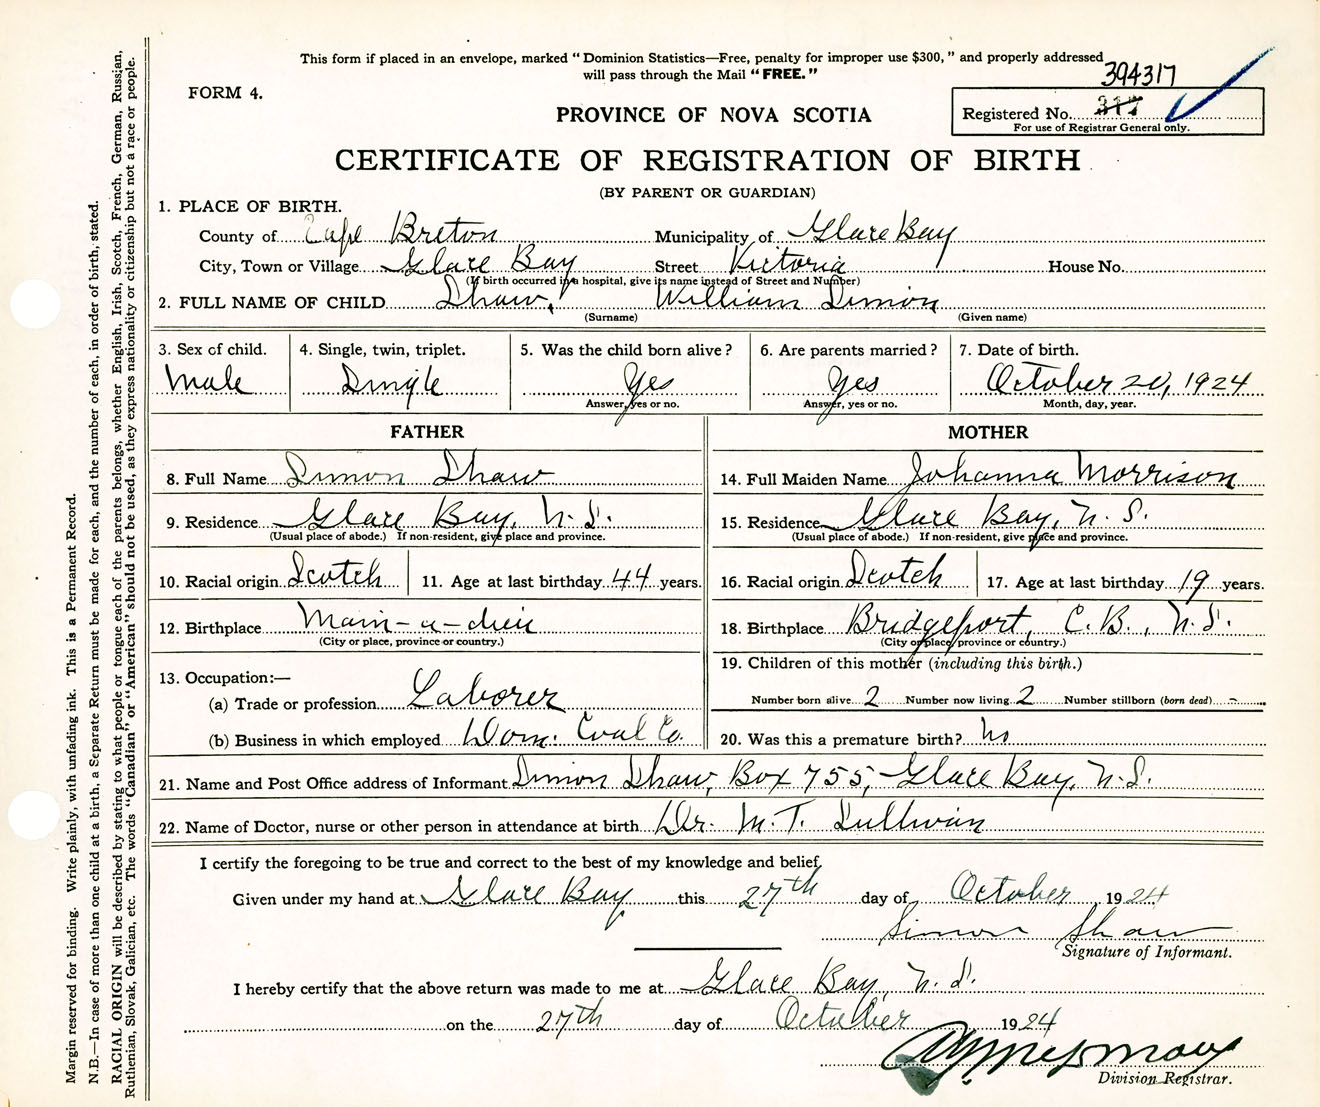 This form if placed in an envelope, marked "Dominion Statistics—Free, penalty for improper use $300," and properly addressed
will pass through the Mail "FREE."
394317
FORM 4.
PROVINCE OF NOVA SCOTIA
Registered No. 317
For use of Registrar General only.
CERTIFICATE OF REGISTRATION OF BIRTH
(BY PARENT OR GUARDIAN)
1. PLACE OF BIRTH.
County of Cape Breton Municipality of Glace Bay
City, Town or Village Glace Bay Street Victoria House No.
(If birth occurred in a hospital, give its name instead of Street and Number)
2. FULL NAME OF CHILD Shaw, William Simon
(Surname) (Given name)
3. Sex of child. 4. Single, twin, triplet. 5. Was the child born alive? 6. Are parents married? 7. Date of birth.
Male Single Yes Yes October 20, 1924
Answer, yes or no. Answer, yes or no. Month, day, year.
FATHER MOTHER
8. Full Name Simon Shaw 14. Full Maiden Name Johanna Morrison
9. Residence Glace Bay, N.S. 15. Residence Glace Bay, N.S.
(Usual place of abode.) If non-resident, give place and province. (Usual place of abode.) If non-resident, give place and province.
10. Racial origin Scotch 11. Age at last birthday 44 years. 16. Racial origin Scotch 17. Age at last birthday 19 years.
12. Birthplace Main-a-dieu 18. Birthplace Bridgeport, C.B., N.S.
(City or place, province or country.) (City or place, province or country.)
19. Children of this mother (including this birth.)
13. Occupation:—
(a) Trade or profession Laborer Number born alive 2 Number now living 2 Number stillborn (born dead) -
(b) Business in which employed Dom. Coal Co. 20. Was this a premature birth? No
21. Name and Post Office address of Informant Simon Shaw, Box 755, Glace Bay, N.S.
22. Name of Doctor, nurse or other person in attendance at birth Dr. M.T. Sullivan
I certify the foregoing to be true and correct to the best of my knowledge and belief.
Given under my hand at Glace Bay this 27th day of October 1924
Simon Shaw
Signature of Informant.
I hereby certify that the above return was made to me at Glace Bay, N.S.
on the 27th day of October 1924
Division Registrar.
Margin reserved for binding. Write plainly, with unfading ink. This is a Permanent Record.
N.B.—In case of more than one child at a birth, a Separate Return must be made for each, and the number of each, in order of birth, stated.
RACIAL ORIGIN will be described by stating to what people or tongue each of the parents belongs, whether English, Irish, Scotch, French, German, Russian,
Ruthenian, Slovak, Galician, etc. The words "Canadian" or "American" should not be used, as they express nationality or citizenship but not a race or people.